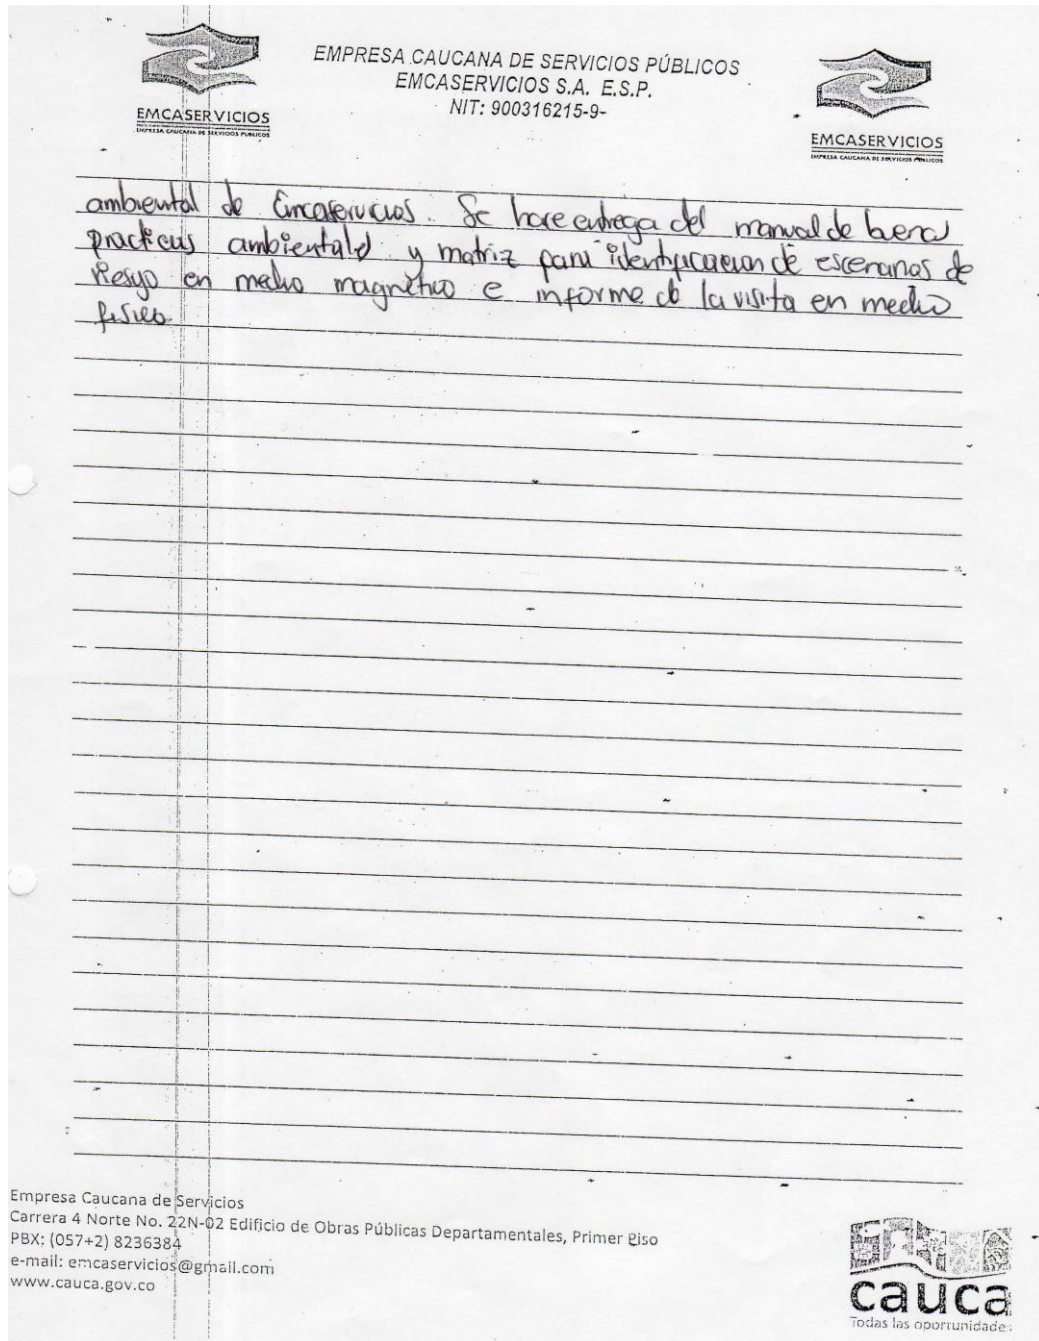 EMPRESA CAUCANA DE SERVICIOS PÚBLICOS
EMCASERVICIOS S.A. E.S.P.
NIT: 900316215-9-
EMCASERVICIOS
EMPRESA CAUCANA DE SERVICIOS PUBLICOS
EMCASERVICIOS
EMPRESA CAUCANA DE SERVICIOS PUBLICOS
ambiental de Emcaservicios. Se hace entrega del manual de buenas
practicas ambientales y matriz para identificacion de escenarios de
Riesgo en medio magnetico e informe de la visita en medio
fisico.
Empresa Caucana de Servicios
Carrera 4 Norte No. 22N-02 Edificio de Obras Públicas Departamentales, Primer Piso
PBX: (057+2) 8236384
e-mail: emcaservicios@gmail.com
www.cauca.gov.co
cauca
Todas las oportunidades